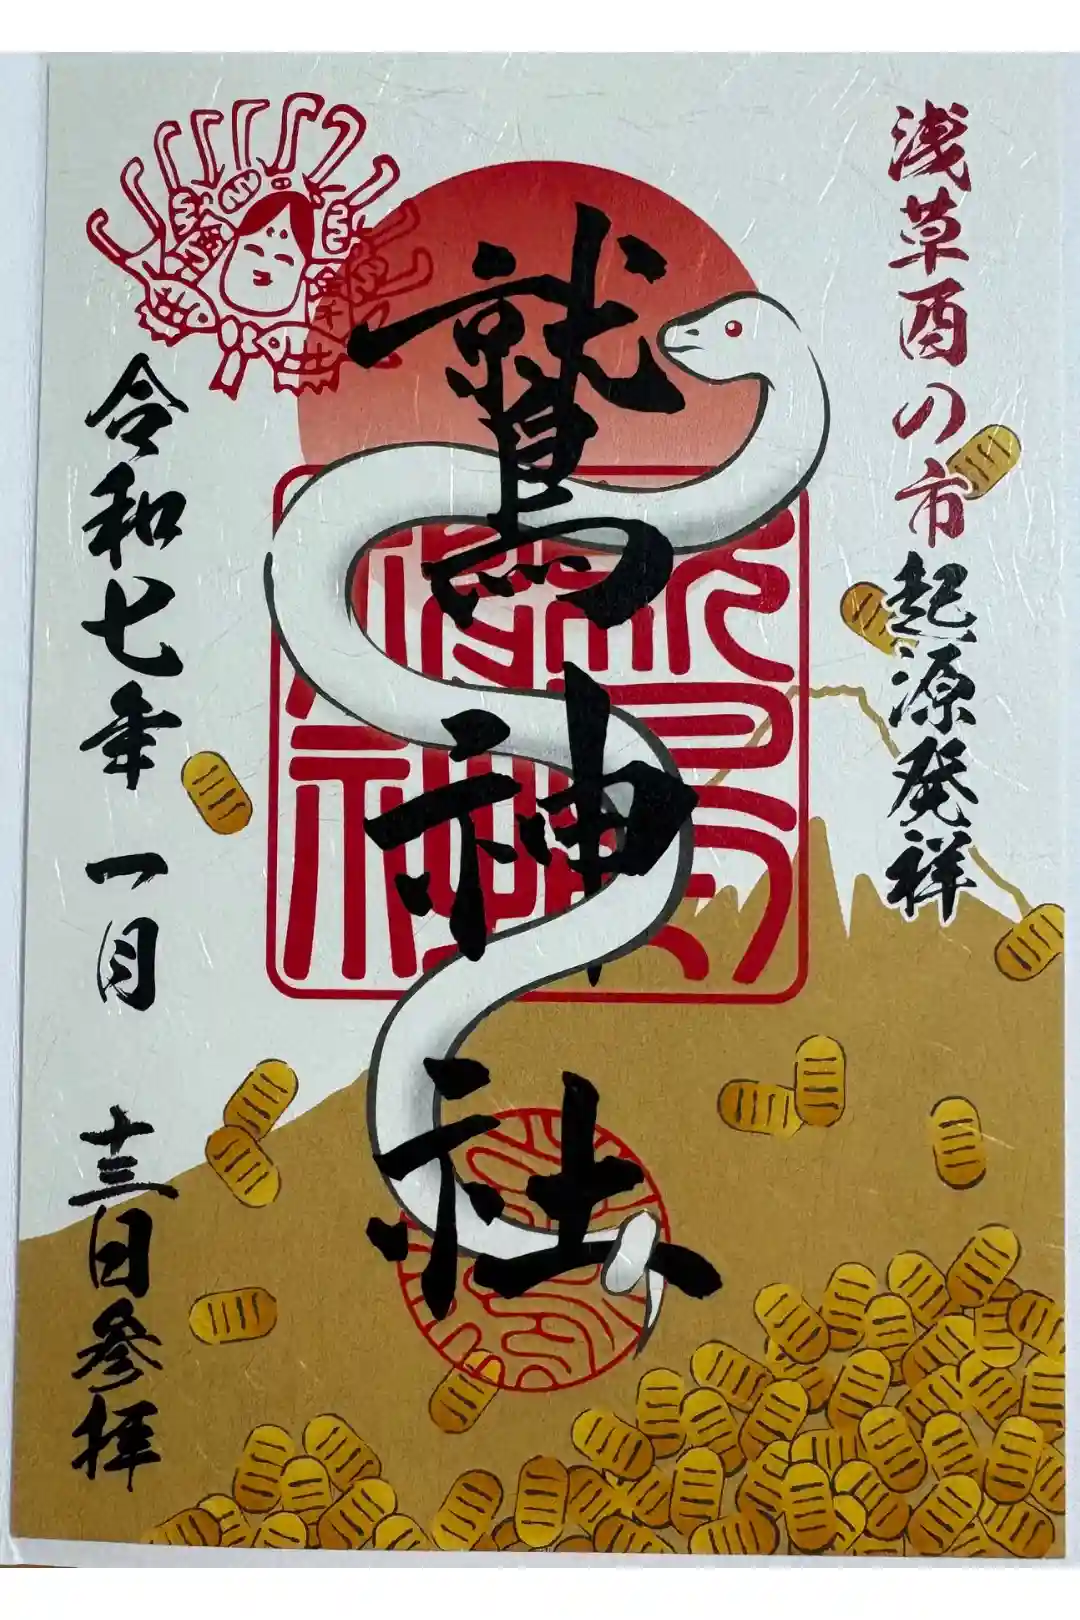 浅草酉の市起源発祥
鷲神社
令和七年 一月 十三日参拝